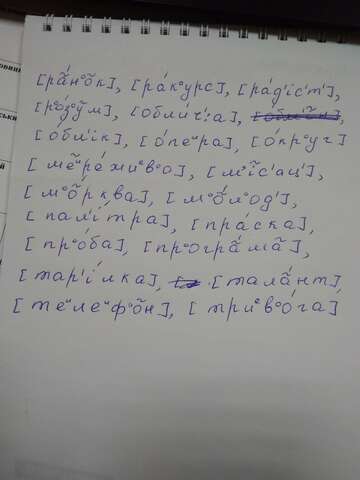 [ра́н°о̃к], [ра́к°урс], [ра́д'іс'т'],
[р°о́з°у̃м], [обли́ч':а],
[о́бл'ік], [о́пеᶸра], [о́кр°уг]
[меᶸре́жиᵉв°о], [м'і́с'ац'],
[м°о́рква], [м°о́л°од'],
[пал'і́тра], [пра́ска],
[пр°о́ба], [пр°огра́ма],
[тар'і́лка], [тала́нт],
[теᶸлеᶸф°о́н], [триᵉв°о́га]